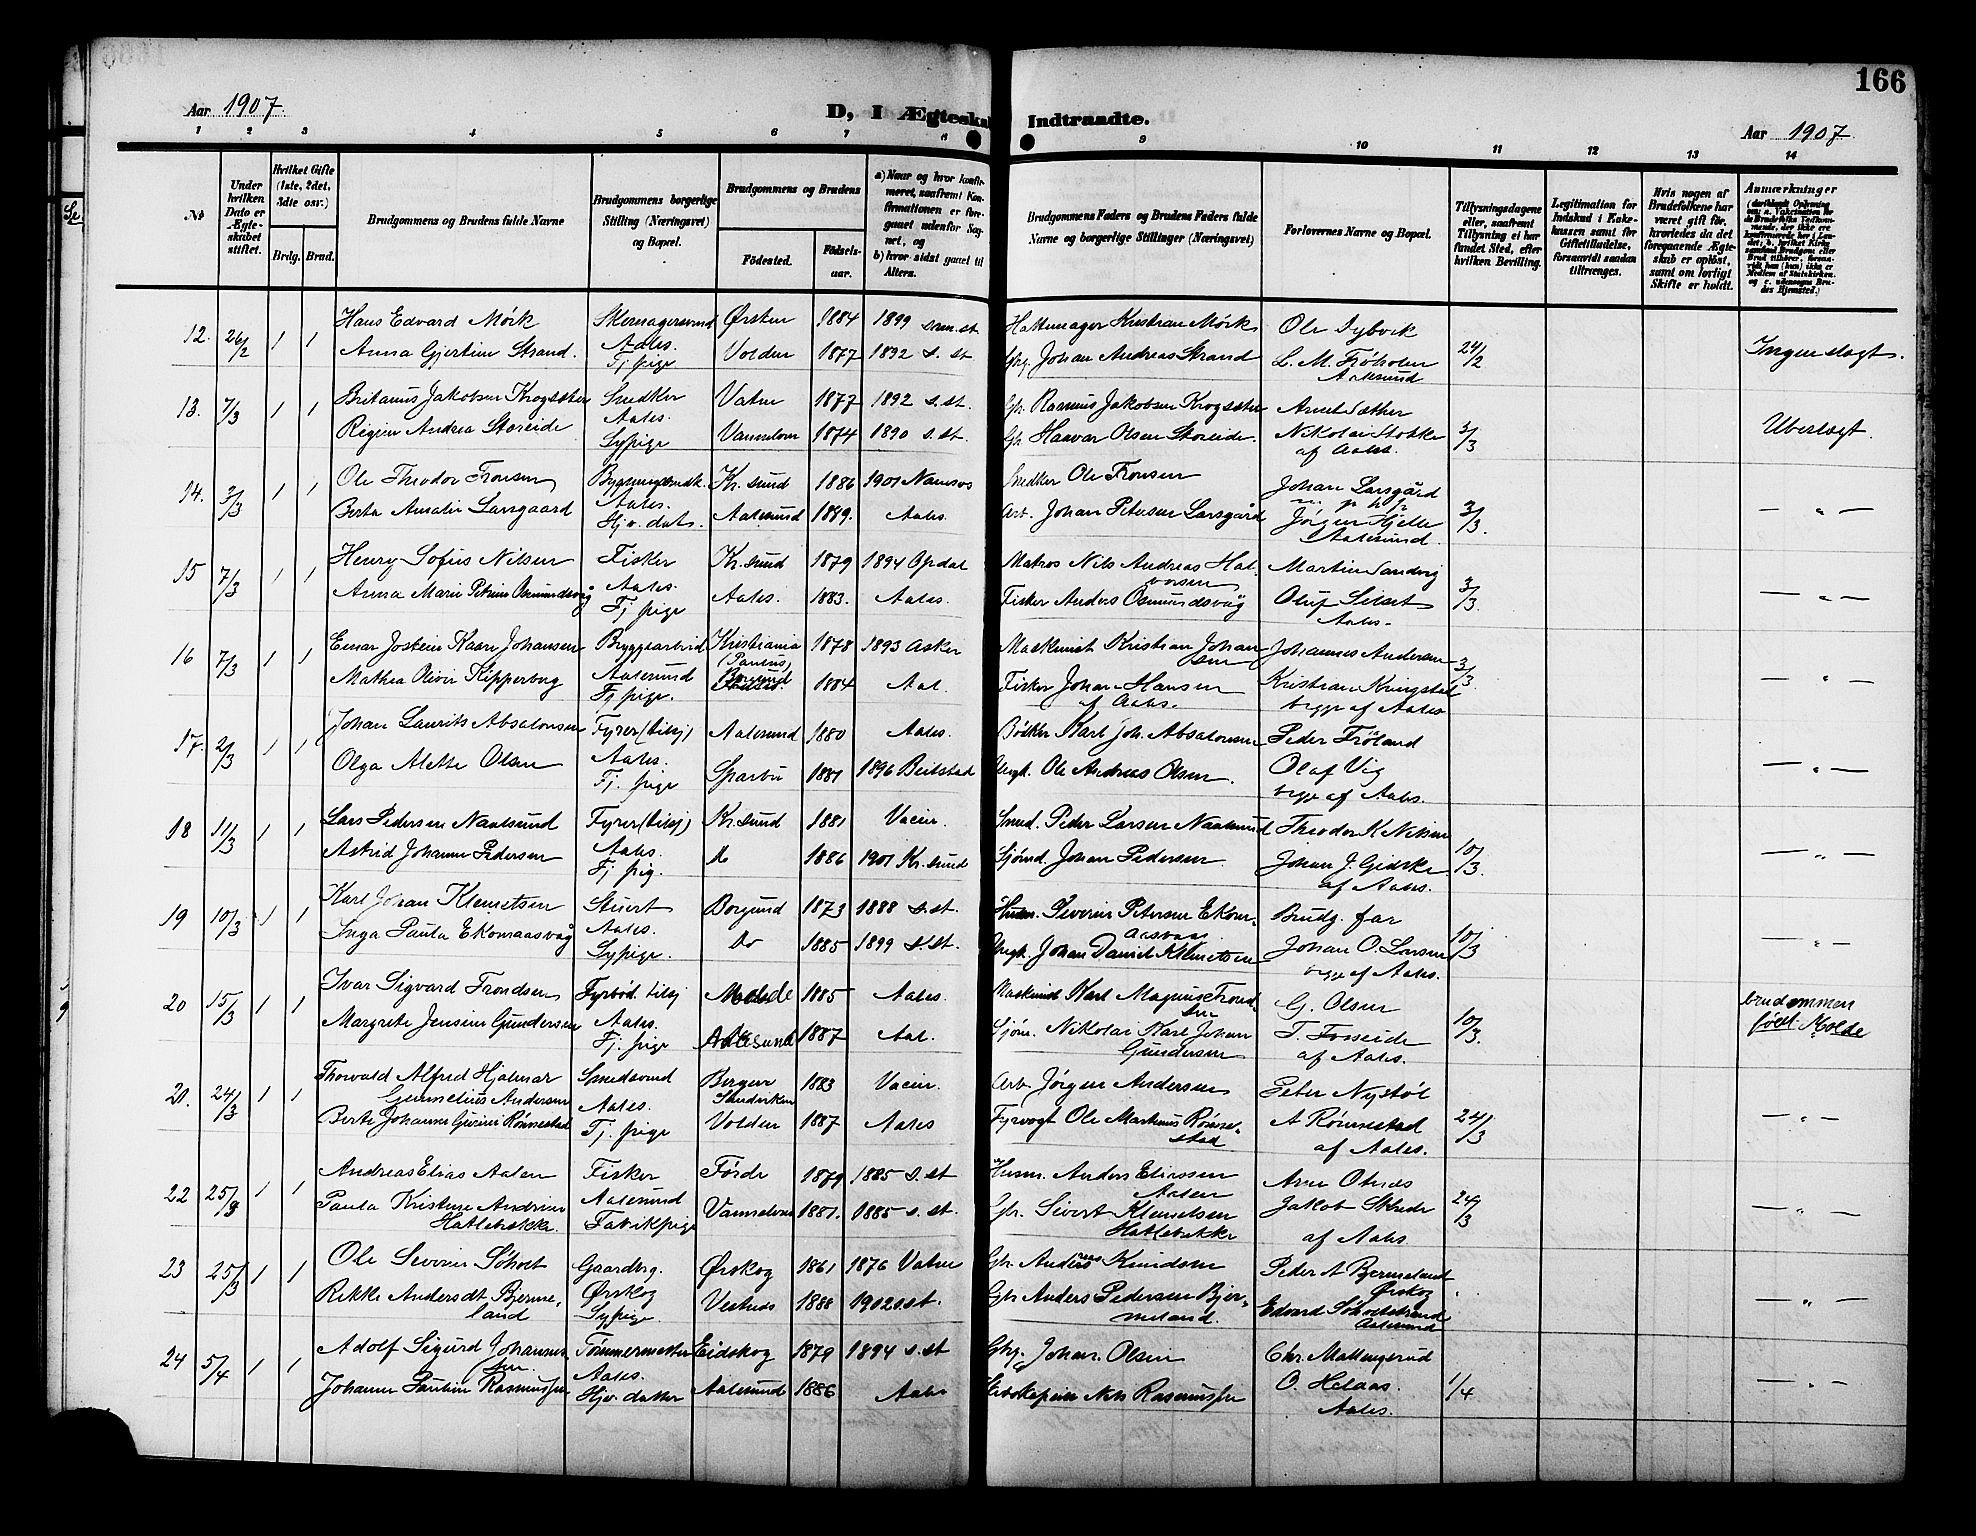 166
Aar 1907.
D, I Ægteskab Indtraadte.
Aar 1907.
1 2 3 4 5 6 7 8 9 10 11 12 13 14
№
Under hvilken Dato er Ægteskabet stiftet.
Hvilket Gifte (1ste, 2det, 3dte osv.)
Brdg. Brud.
Brudgommens og Brudens fulde Navne
Brudgommens borgerlige Stilling (Næringsvei) og Bopæl.
Brudgommens og Brudens
Fødested. Fødselsaar.
a) Naar og hvor konfirmeret, saafremt Konfirmationen er foregaaet udenfor Sognet, og
b) hvor sidst gaaet til Alters.
Brudgommens Faders og Brudens Faders fulde Navne og borgerlige Stillinger (Næringsvei)
Forlovernes Navne og Bopæl.
Tillysningsdagene eller, saafremt Tillysning ei har fundet Sted, efter hvilken Bevilling.
Legitimation for Indskud i Enkekassen samt for Giftetilladelse, forsaavidt saadan tiltrænges.
Hvis nogen af Brudefolkene har været gift før, hvorledes da det foregaaende Ægteskab er opløst, samt om lovligt Skifte er holdt.
Anmærkninger
12. 26/2 1 1 Hans Edvard Mörk Skomagersvend Ørsten 1884 1899 samst. Hattemager Kristian Mörk Ole Dybvik
Aales.
Anna Gjertine Strand. Tj. pige Volden 1877 1892 s. st Gbg. Johan Andreas Strand L. M. Fröholm 24/2 Ingen slegt.
Aalesund
13. 7/3 1 1 Britanus Jakobsen Krogsæter Snedker Vatne 1877 1892 s. st. Gbr. Rasmus Jakobsen Krogsæter Arne Sæther
Aales.
Regine Andrea Storeide Sypige Vannelven 1874 1890 s. st. Gbr. Haavar Olsen Storeide. Nikolai Stokke 3/3 Ubeslegt.
af Aales.
14. 3/3 1 1 Ole Theodor Fronsen Bygningssnedk. Kr. sund 1886 1901 Namsos Snedker Ole Fronsen Johan Larsgård
Aales.
Berta Amalie Larsgaard Hjv. dat. Aalesund 1889. Aales. Arb. Johan Petersen Larsgård Jörgen Hjelle 3/3. — " —
Aalesund.
15 7/3 1 1 Henry Sofus Nilsen Fisker Kr. sund 1879 1894 Opdal Matros Nils Andreas Halvorsen Martin Sandvig
Aales.
Anna Marie Petrine Osmundsvåg Tj. pige Aales. 1883. Aales. Fisker Anders Osmundsvåg Oluf Silset 3/3. — " —
Aales.
16 7/3 1 1 Einar Jostein Kaare Johansen Bryggearbeid Kristiania 1878 1893 Asker Maskinist Kristian Johansen Johannes Andersen
Aalesund
Mathea Oline Klipperberg Tj. pige. Borgund 1884 Aal. Fisker Johan Hansen Kristian Kringstad 3/3. — " —
af Aales. begge af Aales
17. 2/3 1 1 Johan Laurits Absalonsen Fyrer (tilsj) Aalesund 1880 Aales. Bökker Karl Joh. Absalonsen Peder Fröland
Aales.
Olga Alette Olsen Tj. pige Sparbu 1881 1896 Beitstad Ungk. Ole Andreas Olsen. Olaf Vig — " —
begge af Aales.
18 11/3 1 1 Lars Pedersen Naalsund Fyrer (tilsj) Kr. sund 1881 Smed. Peder Larsen Naalsund Theodor K. Nilsen
Aales.
Astrid Johanne Pedersen Tj. pig. do 1886 1901 Kr. sund Sjömd. Johan Pedersen. Johan J. Gidske 10/3. — " —
af Aales.
19 10/3 1 1 Karl Johan Klemetsen Stuert Borgund 1873 1888 s. st. Husm. Severin Petersen Ekornaasvaag Brudg. far
Aales.
Inga Paula Ekornaasvåg Sypige. do 1885 1899 s. st. Ungk. Johan Daniel Klemetsen Johan O. Larsen 10/3 — " —
begge af Aales.
20 15/3 1 1 Ivar Sigvard Trondsen Fyrbød. tilsj Molde 1885 Aales. Maskinist Karl Magnus Trondsen G. Olsen brudommen
Aales. født Molde
Margrete Jensine Gundersen Tj. pige Aalesund 1887 Aal. Sjöm. Nikolai Karl Johan Gundersen T. Fosseide 10/3.
af Aales.
20. 24/3 1 1 Thorvald Alfred Hjalmar Smedsvend Bergen 1883 Arb. Jörgen Andersen Peter Nystöl
Gunnelius Andersen Aales. Sandviken
Berte Johanne Gurine Rönnestad Tj. pige Volden 1887 Aales Fyrvogt Ole Martinus Rönnestad A Rönnestad 24/3 — " —
af Aales.
22 25/3 1 1 Andreas Elias Aalen Fisker Förde 1879 1885 s. st Husm. Anders Eliassen Aalen Arne Otnes
Aalesund
Paula Kristine Andrine Hatlebakke Fabrikpige Vannelven 1881. 1885 s. st. Gbr. Sivert Klemetsen Hatlebakke Jakob Skrede 24/3 — " —
af Aales.
23 25/3 1 1 Ole Severin Søholt Gaardbrg. Ørskog 1861 1876 Vatne Gbr. Andreas Knudsen Peder A Bjermeland
Ørskog Ørskog
Rikke Andersdt Bjermeland Sypige. Vestnes 1888 1902 s. st. Gbr Anders Pedersen Bjermeland. Edvard Søholtstrand — " —
Aalesund
24 5/4 1 1 Adolf Sigurd Johannessen Tömmermester Eidskog 1879 1894 s. st Gbg. Johan Olsen Chr. Mallengerud
Aales.
Johanne Pauline Rasmussen Hjv. datter Aalesund 1886 Aales Nils Rasmussen O. Helaas. 1/4 — " —
Aales.